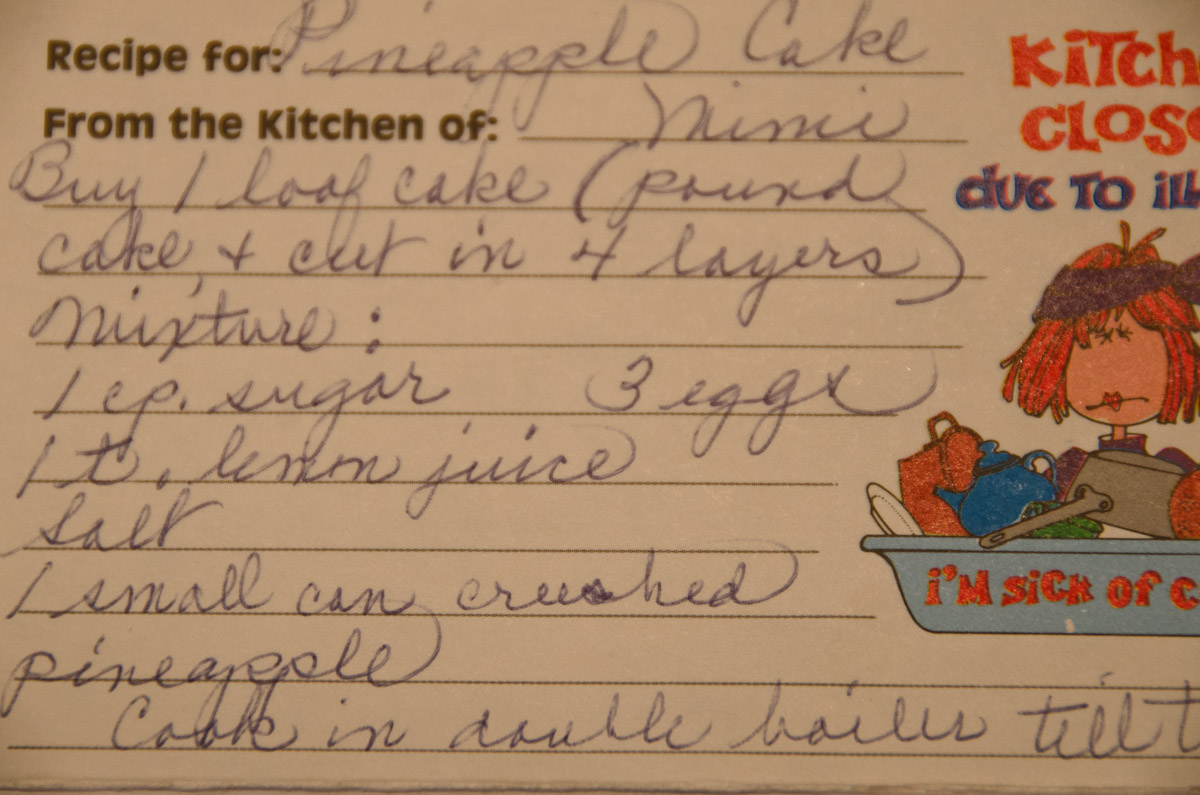 Recipe for: Pineapple Cake
From the Kitchen of: Mimi
Buy 1 loaf cake (pound
cake, & cut in 4 layers)
Mixture:
1 cp. sugar 3 eggs
1 t. lemon juice
Salt
1 small can crushed
pineapple
Cook in double boiler till t
KiTCH
CLOS
dUE TO ill
i'M SiCK OF C